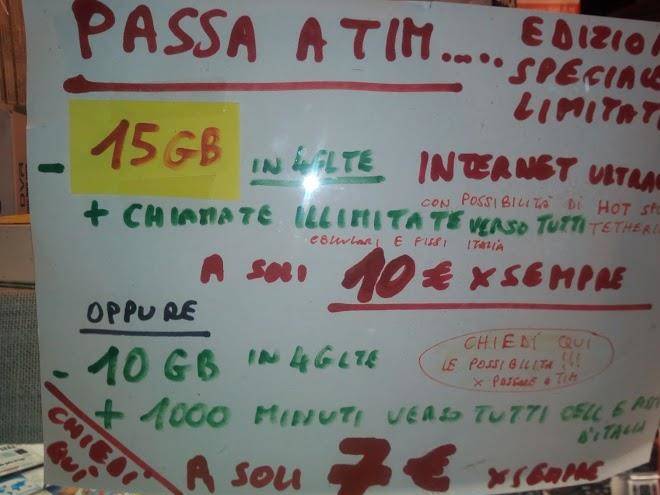 PASSA A TIM.....
EDIZIO
SPECIALE
LIMITAT
- 15GB IN 4GLTE
INTERNET ULTRA
CON POSSIBILITÀ DI HOT SP
+ CHIAMATE ILLIMITATE VERSO TUTTI TETHERI
CELLULARI E FISSI ITALIA
A SOLI 10 € X SEMPRE
OPPURE
- 10 GB IN 4GLTE
CHIEDI QUI
LE POSSIBILITA' !!!
X PASSARE A TIM
+ 1000 MINUTI VERSO TUTTI CELL E
D'ITALIA
CHIEDI
QUI
A SOLI 7 € X SEMPRE